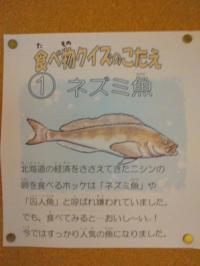 食べ物クイズのこたえ
① ネズミ魚
北海道の経済をささえてきたニシンの
卵を食べるホッケは「ネズミ魚」や
「囚人魚」と呼ばれ嫌われていました。
でも、食べてみると…おいしーい！
今ではすっかり人気の魚になりました。